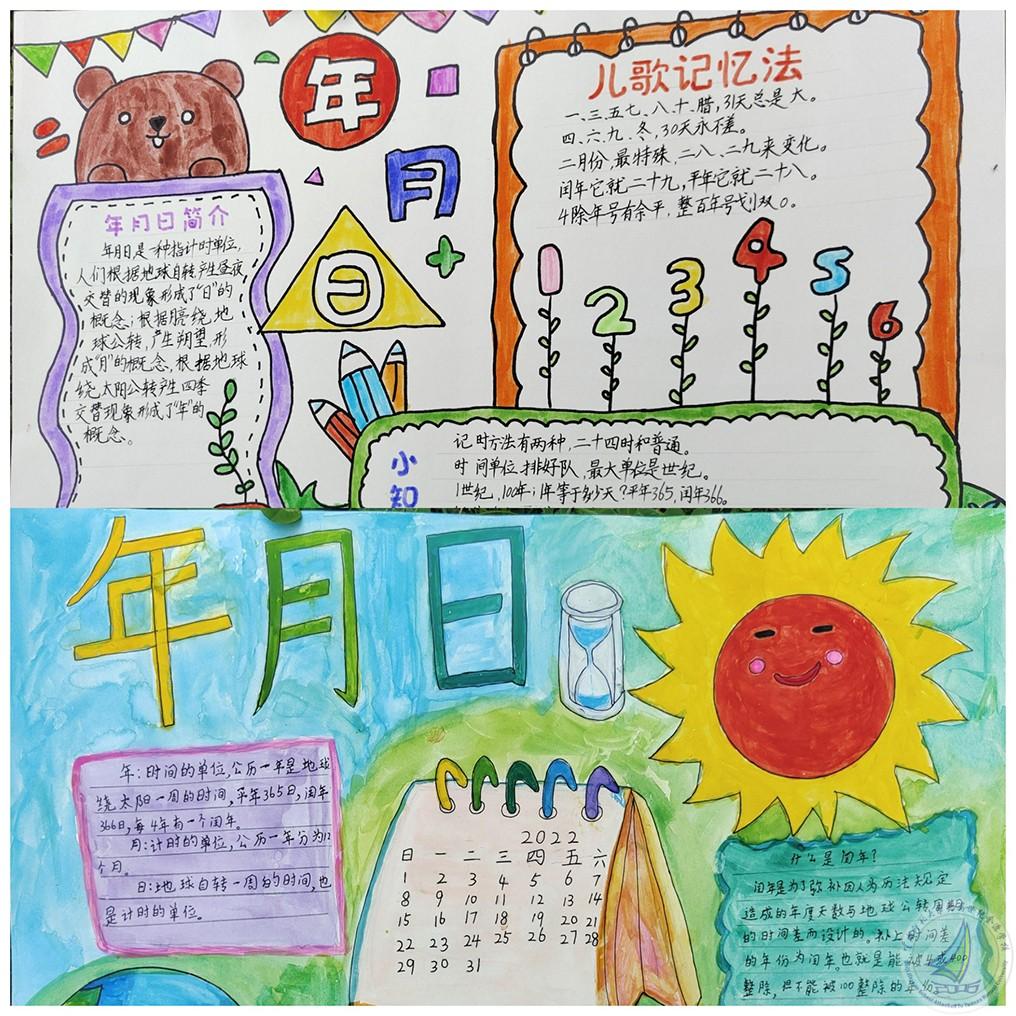 年
月
日
年月日简介
年月日是一种指计时单位,
人们根据地球自转产生昼夜
交替的现象形成了“日”的
概念;根据月亮绕地
球公转,产生朔望,形
成“月”的概念,根据地球
绕太阳公转产生四季
交替现象形成了“年”的
概念。
儿歌记忆法
一、三、五七、八、十、腊,31天总是大。
四、六、九、冬,30天永不差。
二月份,最特殊,二八、二九来变化。
闰年它就二十九,平年它就二十八。
4除年号有余平,整百年号划双0。
1 2 3 4 5 6
小知
记时方法有两种,二十四时和普通。
时间单位排好队,最大单位是世纪。
1世纪,100年;1年等于多少天?平年365,闰年366。
年月日
年:时间的单位,公历一年是地球
绕太阳一周的时间,平年365日,闰年
366日,每4年有一个闰年。
月:计时的单位,公历一年分为12
个月。
日:地球自转一周的时间,也
是计时的单位。
2022
日 一 二 三 四 五 六
1 2 3 4 5 6 7
8 9 10 11 12 13 14
15 16 17 18 19 20 21
22 23 24 25 26 27 28
29 30 31
什么是闰年?
闰年是为了弥补因人为历法规定
造成的年度天数与地球公转周期
的时间差而设计的。补上时间差
的年份为闰年。也就是能被4或400
整除,但不能被100整除的年份